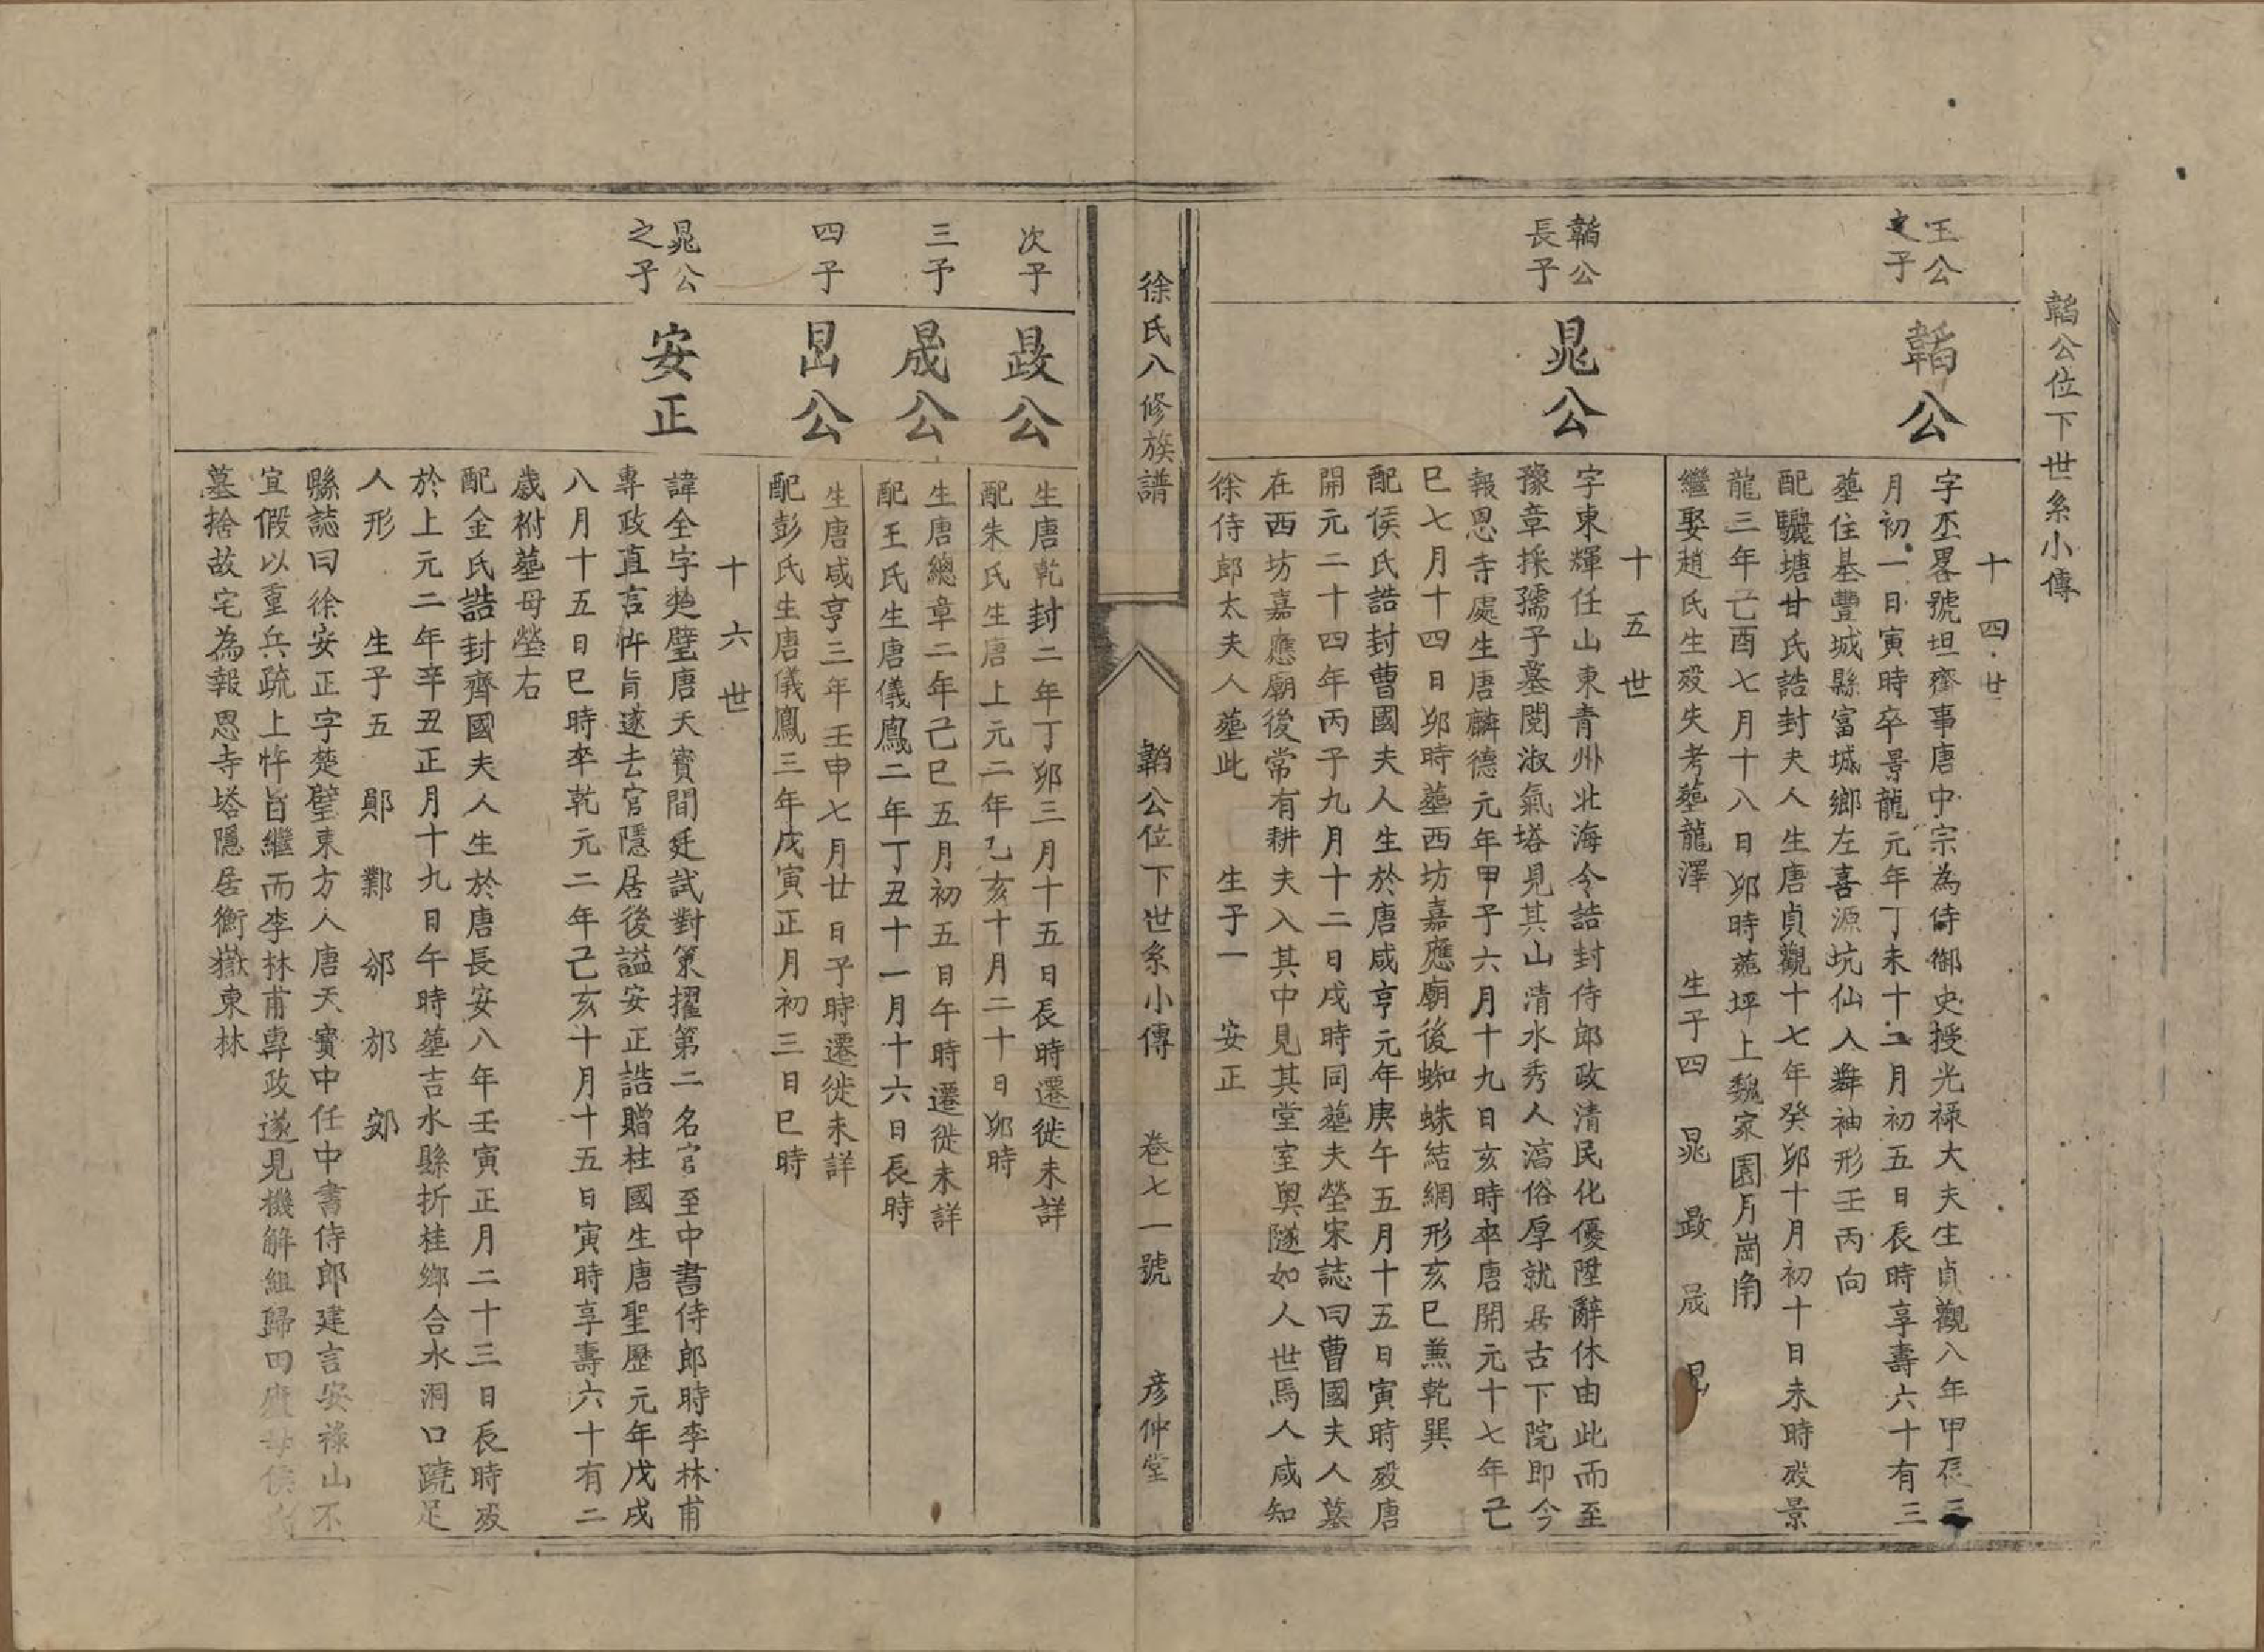 韜公位下世系小傳
十四世
王公
之子
韜公
字丕畧號坦齋事唐中宗為侍御史授光祿大夫生貞觀八年甲辰三
月初一日寅時卒景龍元年丁未十二月初五日長時享壽六十有三
塟住基豐城縣富城鄉左喜源坑仙人舞袖形壬丙向
配驪塘甘氏誥封夫人生唐貞觀十七年癸卯十月初十日未時歿景
龍三年己酉七月十八日卯時塟坪上魏家園月崗角
繼娶趙氏生歿失考塟龍澤 生子四 晁 晸 晟
十五世
韜公
長子
晁公
字東輝任山東青州北海令誥封侍郎政清民化優陞辭休由此而至
豫章採孺子墓閱淑氣塔見其山清水秀人滈俗厚就居古下院即今
報恩寺處生唐麟德元年甲子六月十九日亥時卒唐開元十七年己
巳七月十四日卯時塟西坊嘉應廟後蜘蛛結網形亥巳兼乾巽
配侯氏誥封曹國夫人生於唐咸亨元年庚午五月十五日寅時歿唐
開元二十四年丙子九月十二日戌時同塟夫塋宋誌曰曹國夫人墓
在西坊嘉應廟後常有耕夫入其中見其堂室奧隧如人世焉人咸知
徐侍郎太夫人塟此 生子一 安正
徐氏八修族譜 韜公位下世系小傳 卷七一號 彦仲堂
次子
晸公
生唐乾封二年丁卯三月十五日長時遷徙未詳
配朱氏生唐上元二年乙亥十月二十日卯時
三子
晟公
生唐總章二年己巳五月初五日午時遷徙未詳
配王氏生唐儀鳳二年丁丑十一月十六日長時
四子
公
生唐咸亨三年壬申七月廿日子時遷徙未詳
配彭氏生唐儀鳳三年戊寅正月初三日巳時
十六世
晁公
之子
安正
諱全字楚璧唐天寶間廷試對策擢第二名官至中書侍郎時李林甫
專政直言忤旨遂去官隱居後謚安正誥贈柱國生唐聖歷元年戊戌
八月十五日巳時卒乾元二年己亥十月十五日寅時享壽六十有二
歲祔塟母塋右
配金氏誥封齊國夫人生於唐長安八年壬寅正月二十三日長時歿
於上元二年辛丑正月十九日午時塟吉水縣折桂鄉合水洞口蹺足
人形 生子五 鄖 鄴 邠 邡 郊
縣誌曰徐安正字楚璧東方人唐天寶中任中書侍郎建言安祿山不
宜假以重兵疏上忤旨繼而李林甫專政遂見機解組歸田廬母侯氏
墓捨故宅為報恩寺塔隱居衡嶽東林